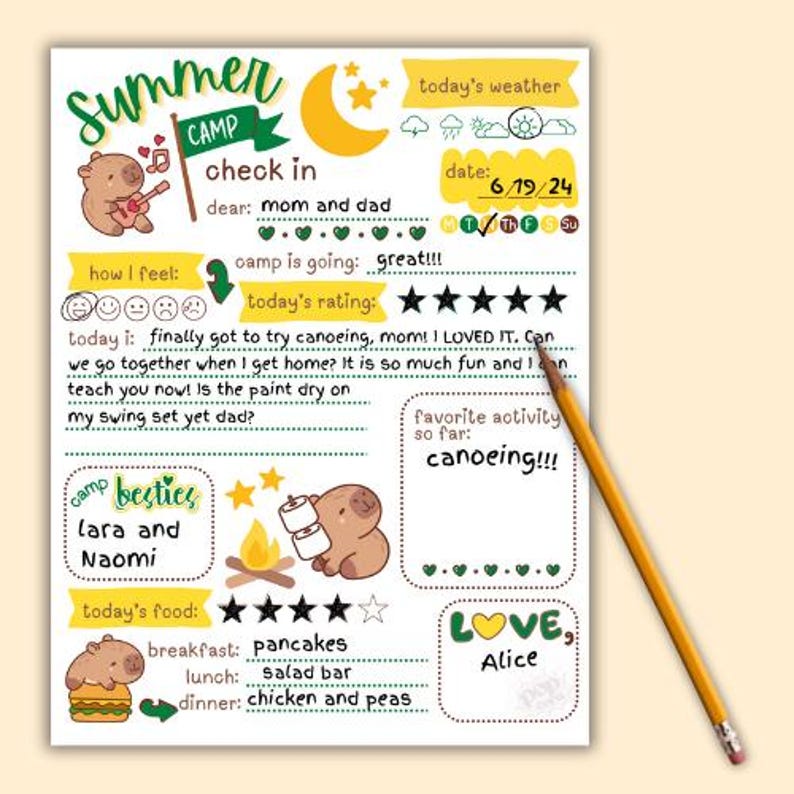 Summer
CAMP
check in
today's weather
date: 6/19/24
M T W Th F S Su
dear: mom and dad
camp is going: great!!!
how I feel:
today's rating:
today i: finally got to try canoeing, mom! I LOVED IT. Can
we go together when I get home? It is so much fun and I can
teach you now! Is the paint dry on
my swing set yet dad?
favorite activity
so far:
canoeing!!!
camp besties
lara and
Naomi
today's food:
breakfast: pancakes
lunch: salad bar
dinner: chicken and peas
LOVE,
Alice